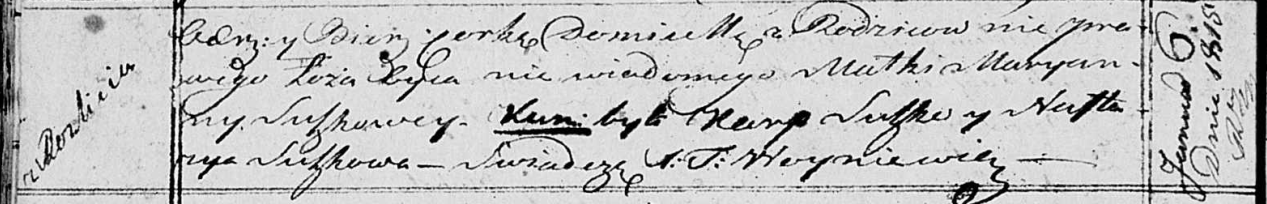 z Rozlicia
Chrz: y Bierz: corkę Domicellę z Rodzicow nie pra-
wego łoża Oyca nie wiadomego Matki Maryan-
ny Suszkowey. Kum: byli Karp Suszko y Nasta-
zya Suszkowa — Swiadczę X: T: Woyniewicz —
Januar 6
Dnia 1815